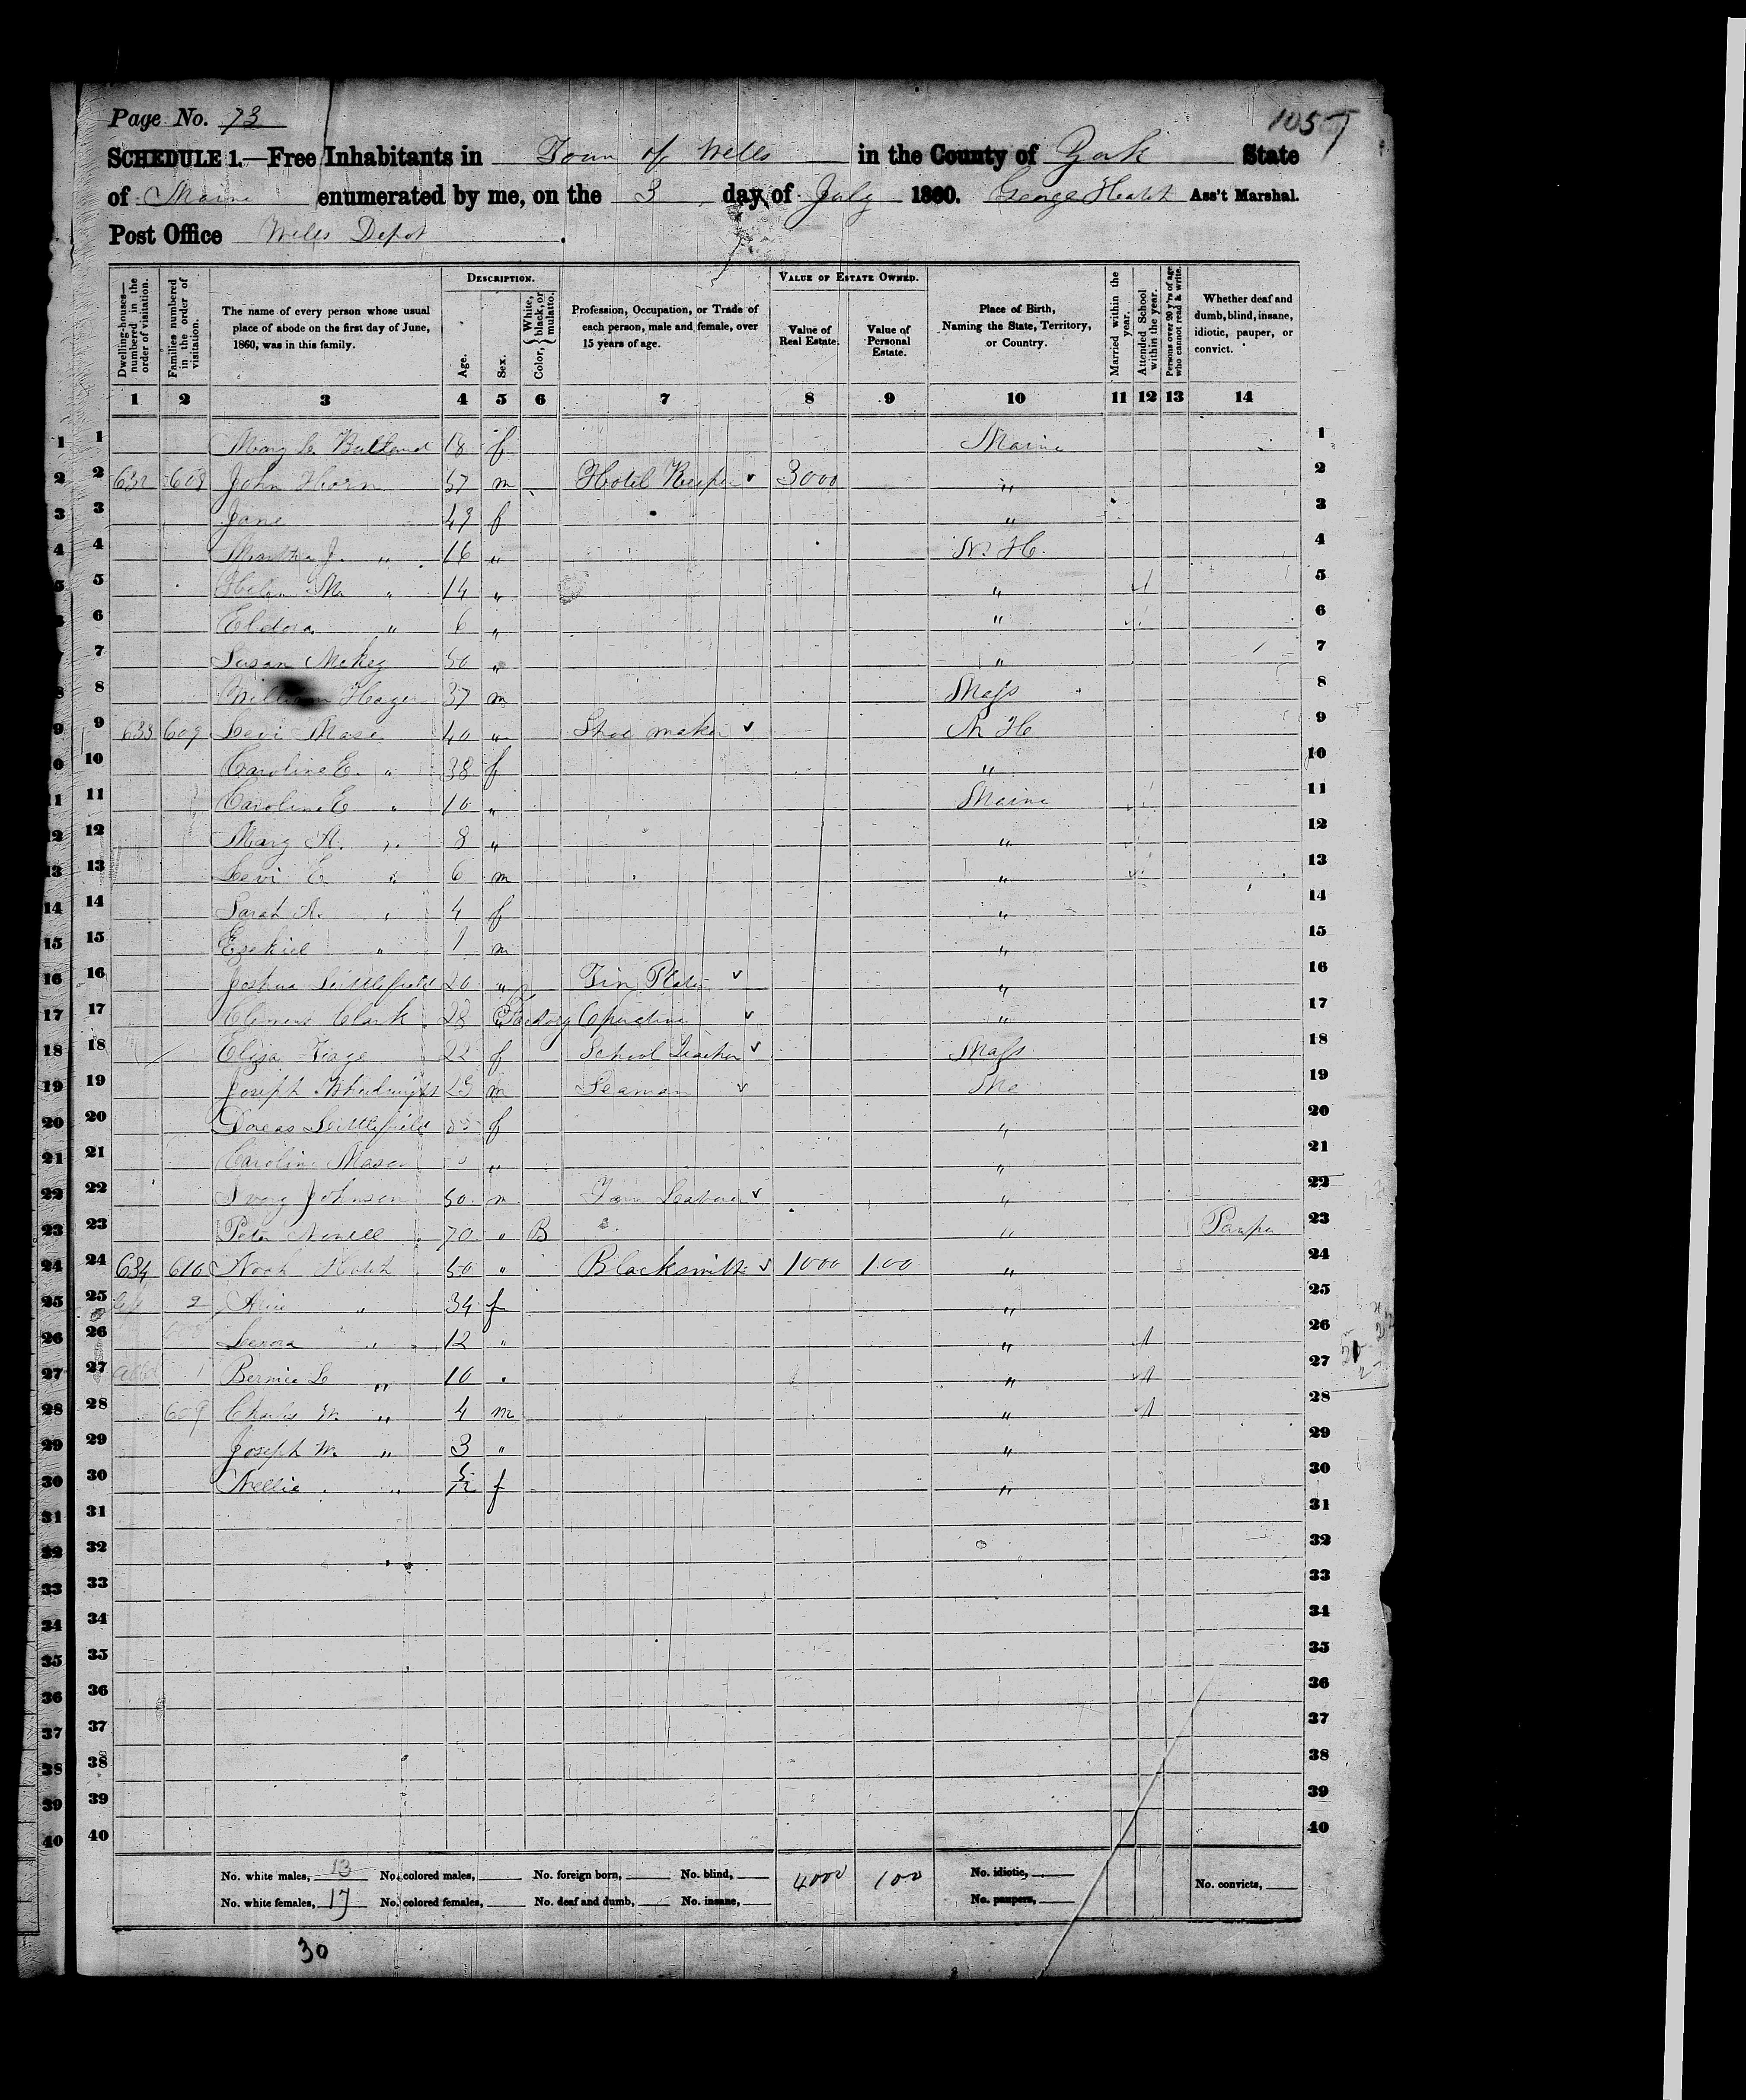 Page No. 73
1057
SCHEDULE 1.—Free Inhabitants in Town of Wells in the County of York State
of Maine enumerated by me, on the 3 day of July 1860. George Hatch Ass't Marshal.
Post Office Wells Depot
DESCRIPTION. VALUE OF ESTATE OWNED.
Dwelling-houses—numbered in the order of visitation. Families numbered in the order of visitation. The name of every person whose usual place of abode on the first day of June, 1860, was in this family. Age. Sex. Color, { White, black, or mulatto. Profession, Occupation, or Trade of each person, male and female, over 15 years of age. Value of Real Estate. Value of Personal Estate. Place of Birth, Naming the State, Territory, or Country. Married within the year. Attended School within the year. Persons over 20 y'rs of age who cannot read & write. Whether deaf and dumb, blind, insane, idiotic, pauper, or convict.
1 2 3 4 5 6 7 8 9 10 11 12 13 14
1 Mary 18 f Maine 1
2 632 608 John Horn 57 m Hotel Keeper 3000 " 2
3 Jane 49 f " 3
4 Martha J. " 16 " N. H. 4
5 Helen M. " 14 " " 5
6 Eldora " 6 " " 6
7 Susan 50 " " 7
8 William 37 m Mass 8
9 633 609 Levi 40 " Shoe maker N H 9
10 Caroline E. " 38 f " 10
11 Caroline E " 10 " Maine 11
12 Mary A. " 8 " " 12
13 Levi E " 6 m " 13
14 Sarah A. " 4 f " 14
15 Ezekiel " 1 m " 15
16 Joshua Littlefield 20 " Tin Plater " 16
17 Clement Clark 28 " Factory Operative " 17
18 Eliza 22 f School Teacher Mass 18
19 Joseph 23 m Seaman Me 19
20 Dorcas Littlefield f " 20
21 Caroline " " 21
22 Ivory Johnson 50 m Farm Laborer " 22
23 Peter 70 " B " Pauper 23
24 634 610 Noah Hatch 50 " Blacksmith 1000 100 " 24
25 2 " 34 f " 25
26 " 12 " " 26
27 1 Bernice L " 10 " " 27
28 609 Charles M. " 4 m " 28
29 Joseph M. " 3 " " 29
30 Nellie " 5/12 f " 30
31 31
32 32
33 33
34 34
35 35
36 36
37 37
38 38
39 39
40 40
No. white males, 13 No. colored males, No. foreign born, No. blind, 4000 100 No. idiotic,
No. white females, 17 No. colored females, No. deaf and dumb, No. insane, No. paupers, No. convicts,
30